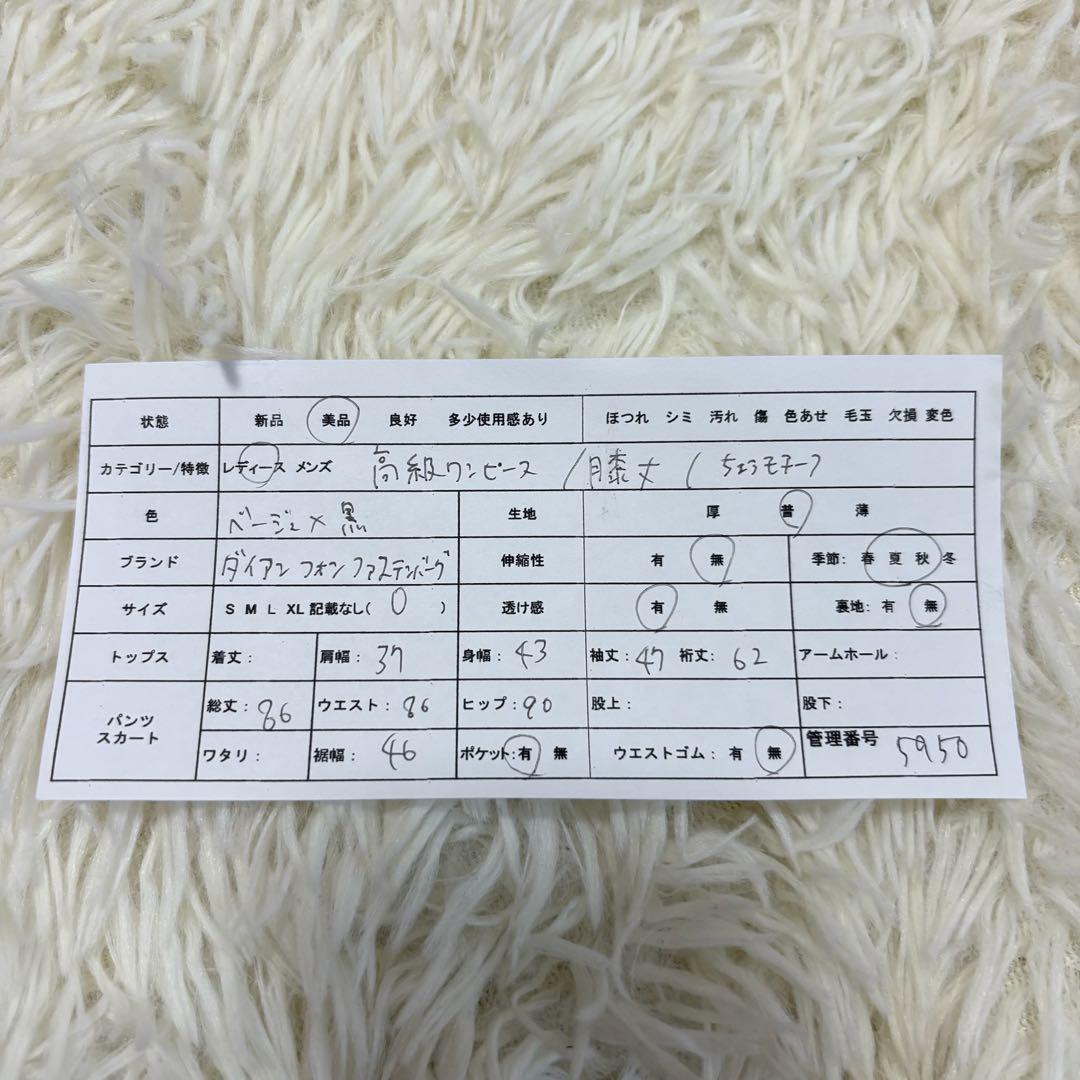 状態 新品 美品 良好 多少使用感あり ほつれ シミ 汚れ 傷 色あせ 毛玉 欠損 変色
カテゴリー/特徴 レディース メンズ 高級ワンピース / 膝丈 / ちょうモチーフ
色 ベージュ×黒 生地 厚 普 薄
ブランド ダイアン フォン ファステンバーグ 伸縮性 有 無 季節: 春 夏 秋 冬
サイズ S M L XL 記載なし( 0 ) 透け感 有 無 裏地: 有 無
トップス 着丈: 肩幅: 37 身幅: 43 袖丈: 47 裄丈: 62 アームホール:
パンツ スカート 総丈: 86 ウエスト: 86 ヒップ: 90 股上: 股下:
ワタリ: 裾幅: 46 ポケット: 有 無 ウエストゴム: 有 無 管理番号 5950